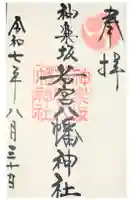 奉拝
神楽坂若宮八幡神社
令和七年八月三十日